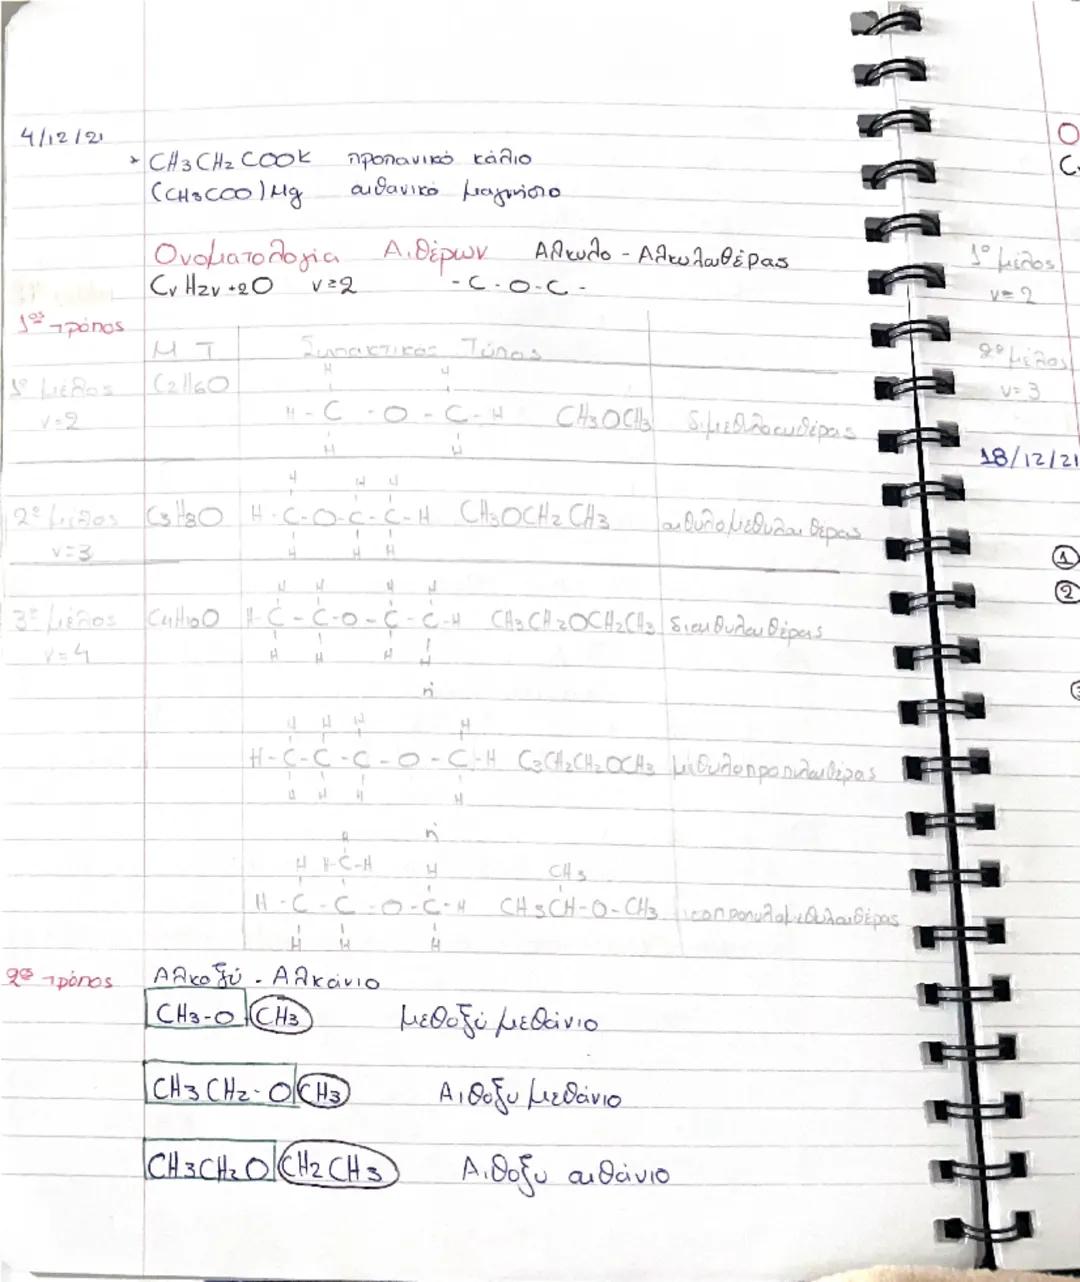 4/12/21
* CH3CH2COOK προπανικό κάλιο
(CH3COO)Mg αιθανικό μαγνήσιο
Ονοματολογία Αιθέρων Αλκυλο - Αλκυλαιθέρας
CνH2ν+2O ν≥2 -C-O-C-
1ος τρόπος
Μ Τ Συντακτικός Τύπος
1ο μέλος C2H6O
ν=2
H - C - O - C - H CH3OCH3 διμεθυλοαιθέρας
2ο μέλος C3H8O H-C-O-C-C-H CH3OCH2CH3 αιθυλομεθυλαιθέρας
ν=3
3ο μέλος C4H10O H-C-C-O-C-C-H CH3CH2OCH2CH3 διαιθυλαιθέρας
ν=4
ή
H-C-C-C-O-C-H C3CH2CH2OCH3 μεθυλοπροπυλαιθέρας
ή
H H-C-H H CH3
H-C-C-O-C-H CH3CH-O-CH3 ισοπροπυλομεθυλαιθέρας
2ος τρόπος Αλκοξύ - Αλκάνιο
CH3-O CH3 μεθοξύ μεθάνιο
CH3CH2-O CH3 Αιθοξυ μεθάνιο
CH3CH2O CH2CH3 Αιθοξυ αιθάνιο
1ο μέλος
ν=2
2ο μέλος
ν=3
18/12/21
1
2